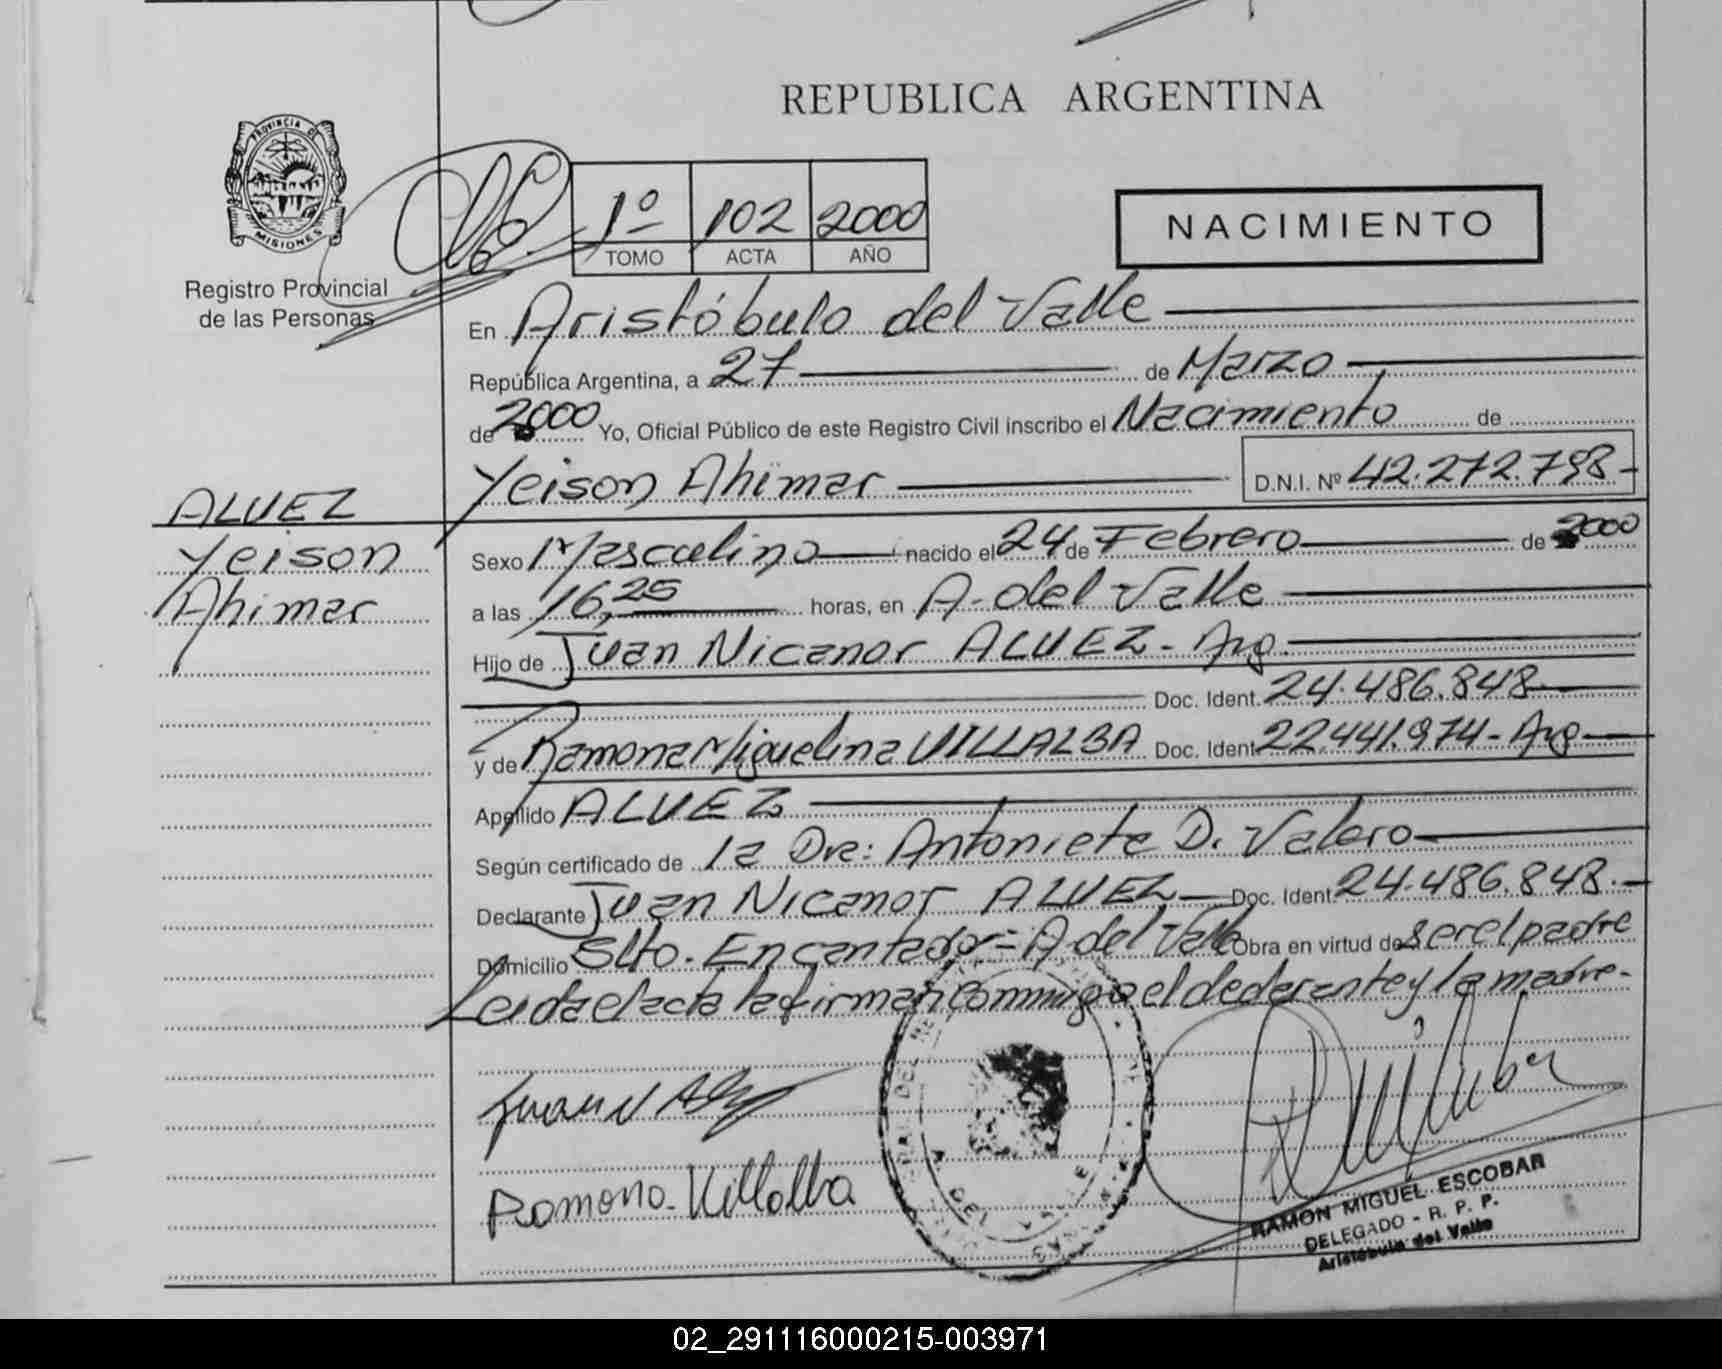 REPUBLICA ARGENTINA
PROVINCIA DE
MISIONES
Registro Provincial
de las Personas
1º 102 2000
TOMO ACTA AÑO
NACIMIENTO
En Aristóbulo del Valle
República Argentina, a 27 de Marzo
de 2000 Yo, Oficial Público de este Registro Civil inscribo el Nacimiento de
Yeison Ahimar D.N.I. Nº 42.272.798-
ALVEZ
Yeison
Ahimar
Sexo Masculino nacido el 24 de Febrero de 2000
a las 16,25 horas, en A. del Valle
Hijo de Juan Nicanor ALVEZ - Arg.
Doc. Ident. 24.486.848
y de Ramona Miguelina VILLALBA Doc. Ident. 22.441.974 - Arg
Apellido ALVEZ
Según certificado de la Dra: Antonieta D. Valero
Declarante Juan Nicanor ALVEZ Doc. Ident 24.486.848.-
Domicilio Slto. Encantado - A del Valle Obra en virtud de ser el padre
Leida el acta la firman conmigo el declarante y la madre.
Juan N Alvez
Ramona Villalba
A. DEL VALLE
RAMON MIGUEL ESCOBAR
DELEGADO - R. P. P.
Aristóbulo del Valle
02_291116000215-003971